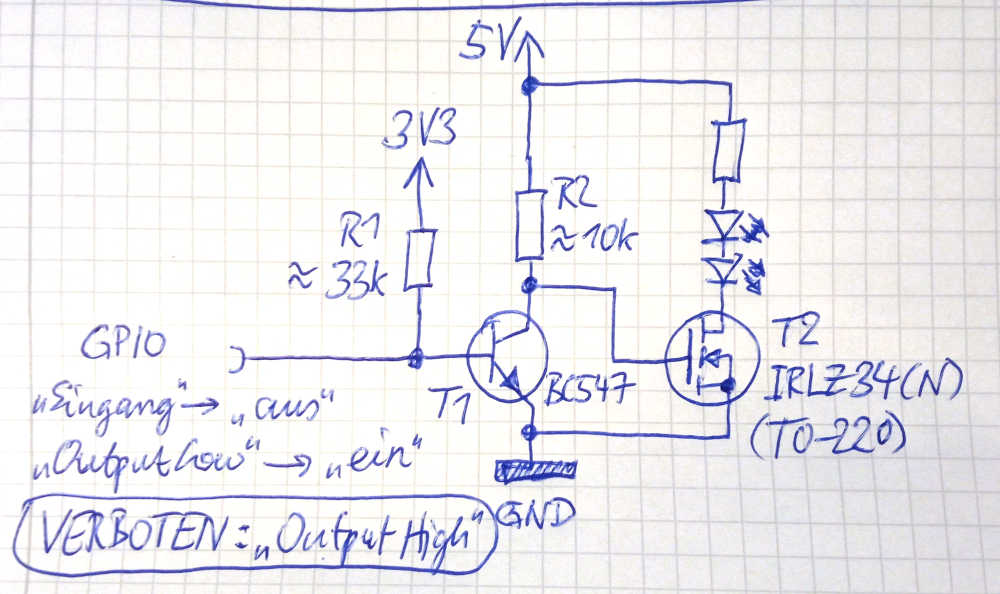 5V
3V3
R1
≈ 33k
R2
≈ 10k
GPIO
T1
BC547
T2
IRLZ34(N)
(TO-220)
„Eingang“ → „aus“
„Output Low“ → „ein“
GND
VERBOTEN = „Output High“